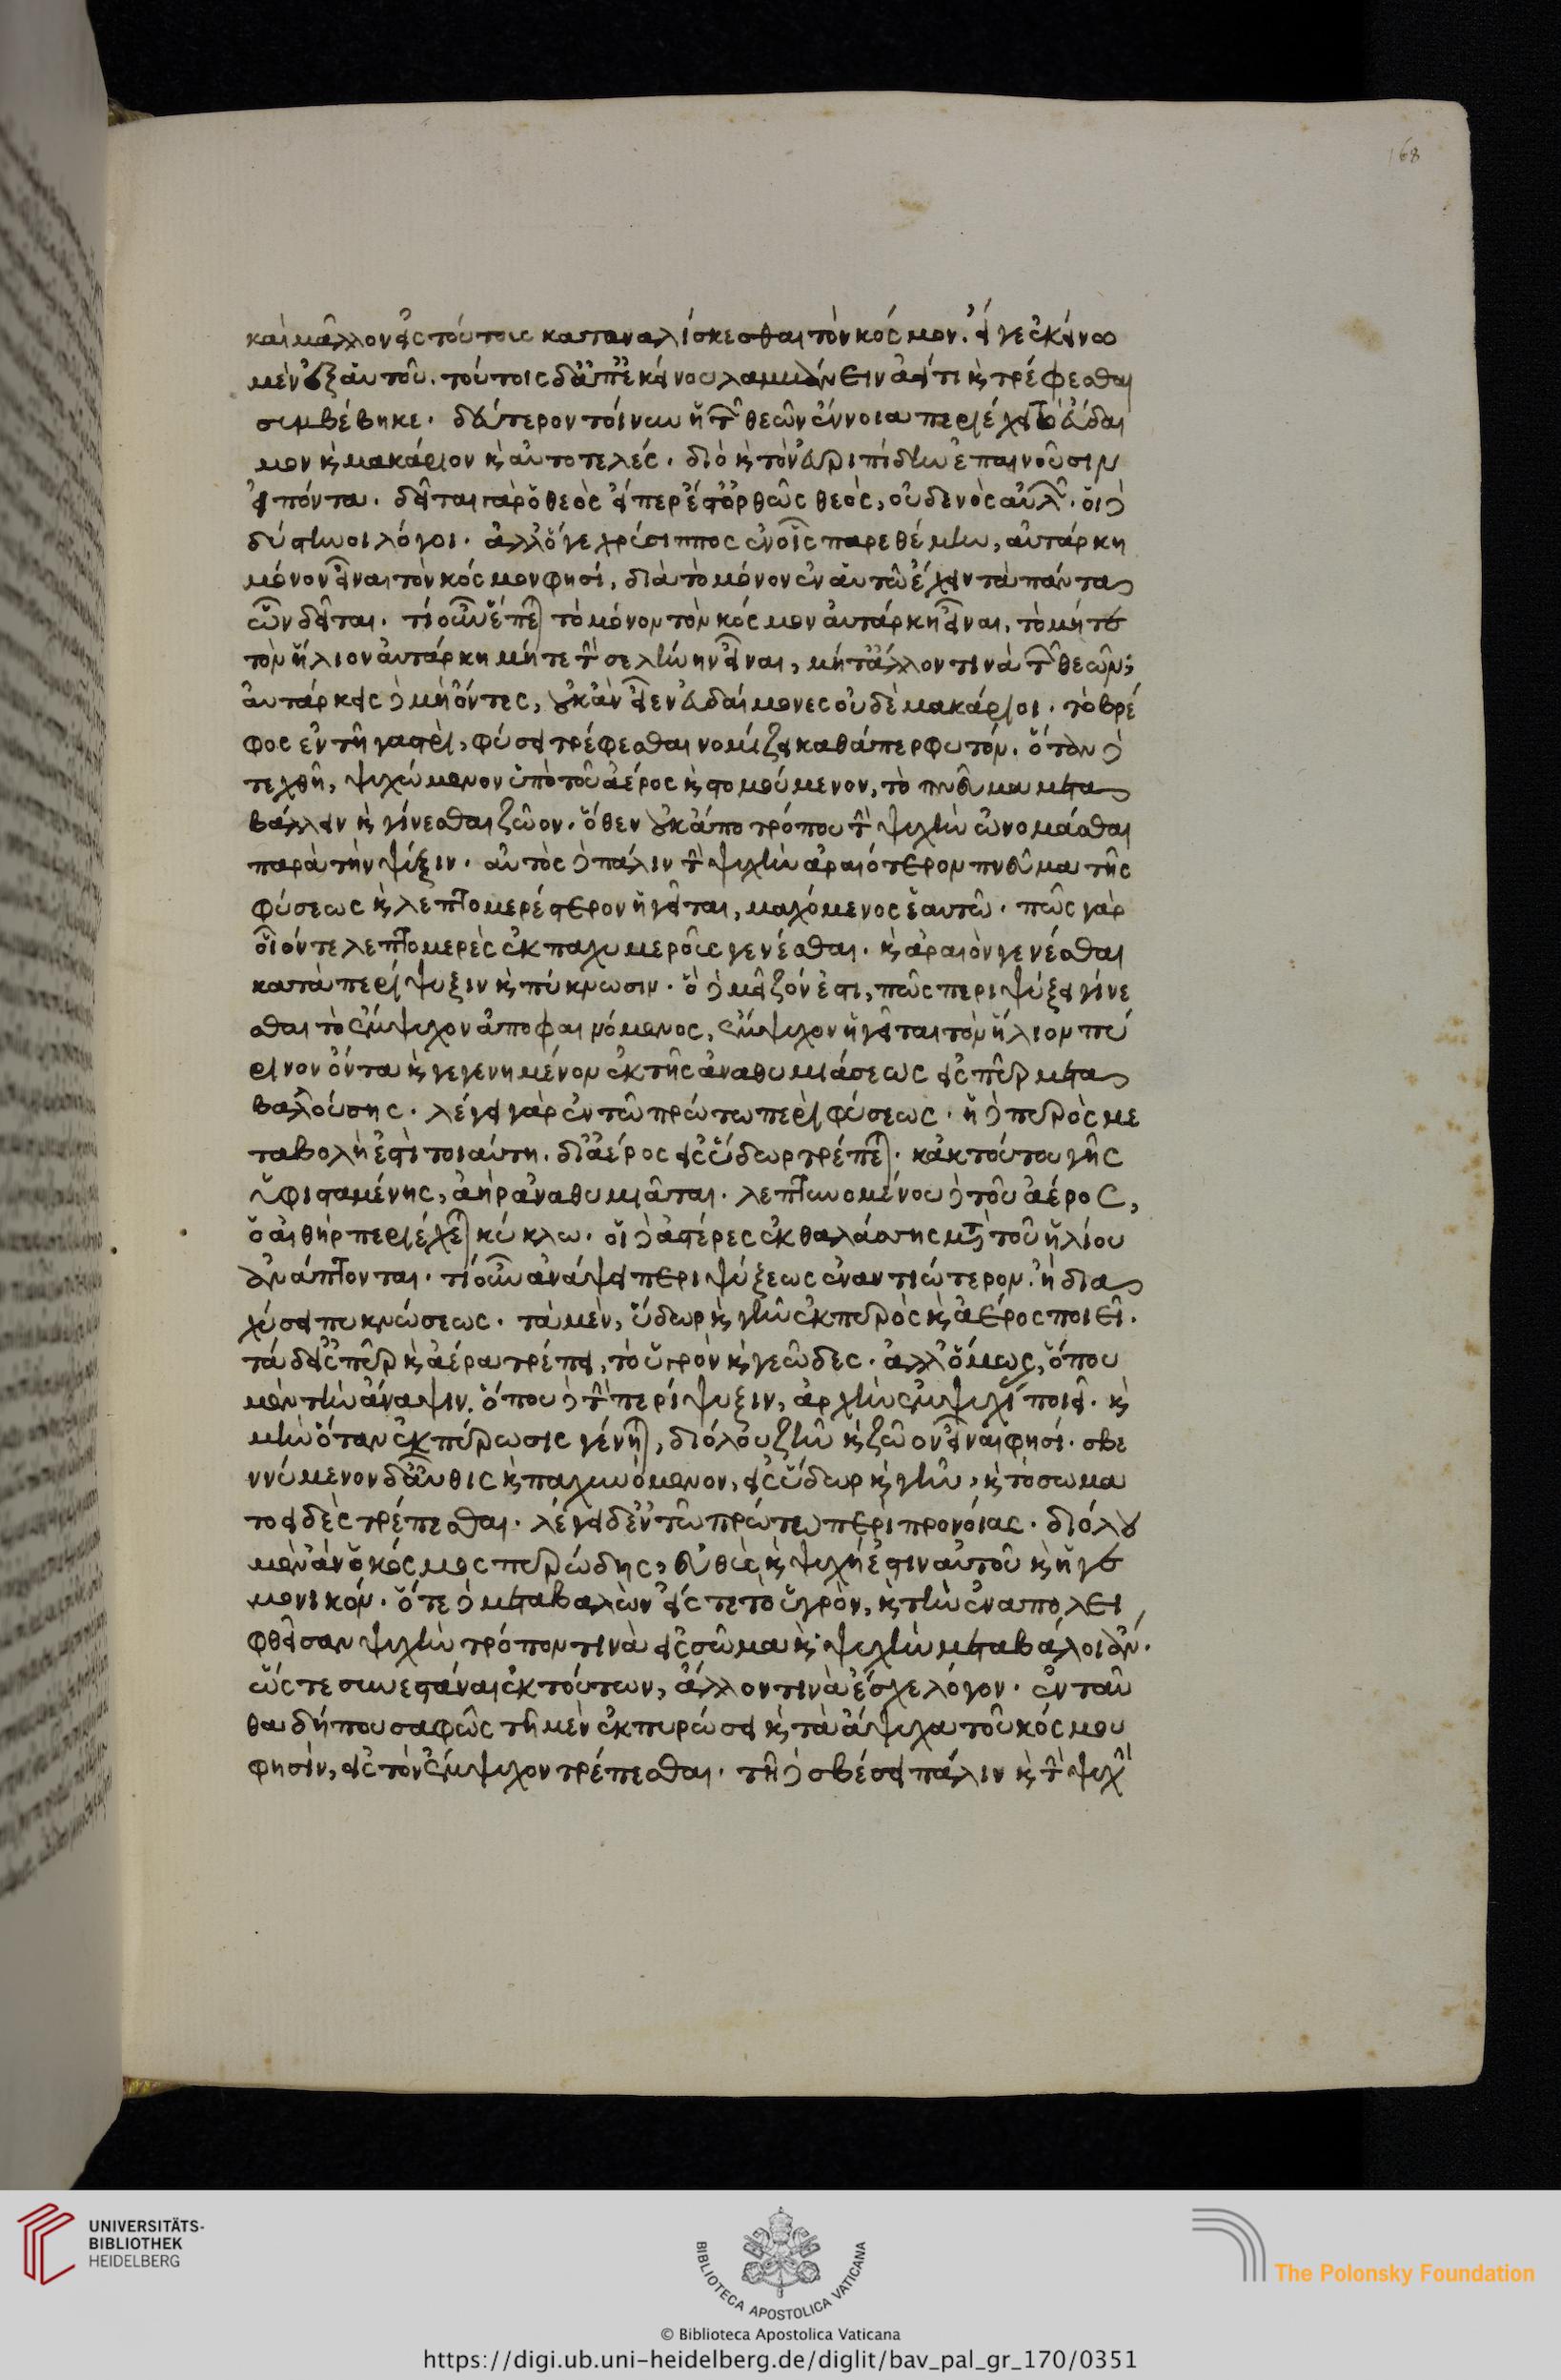 καὶ μᾶλλον εἰς τούτοις καταναλίσκεσθαι τὸν κόσμον. εἴ γε ἐκείνω
μὲν ἐξ αὑτοῦ. τούτοις δ' ἀπ' ἐκείνου λαμβάνειν ἀεί τι καὶ τρέφεσθαι
συμβέβηκε. δεύτερον τοίνυν ἡ τῶν θεῶν ἔννοια περιέχει τὸ εὔδαι
μον καὶ μακάριον καὶ αὐτοτελές. διὸ καὶ τὸν εὐριπίδην ἐπαινοῦσιν
εἰπόντα. δεῖται γὰρ ὁ θεὸς εἴπερ ἔστ' ὀρθῶς θεὸς, οὐδενὸς οἱ δὲ
δύστηνοι λόγοι. ἀλλ' ὅγε χρύσιππος ἐν οἷς παρεθέμην, αὐτάρκη
μόνον εἶναι τὸν κόσμον φησί, διὰ τὸ μόνον ἐν αὑτῶ ἔχειν τὰ πάντα
ὧν δεῖται. τί οὖν ἕπεται τὸ μόνον τὸν κόσμον αὐτάρκη εἶναι, τὸ μήτε
τὸν ἥλιον αὐτάρκη μήτε τὴν σελήνην εἶναι, μήτ' ἄλλον τινὰ τῶν θεῶν;
αὐτάρκεις δὲ μὴ ὄντες, οὐκ ἂν εἶεν εὐδαίμονες οὐδὲ μακάριοι. τὸ βρέ
φος ἐν τῆ γαστρὶ, φύσει τρέφεσθαι νομίζει καθάπερ φυτόν. ὅταν δὲ
τεχθῆ, ψυχώμενον ὑπὸ τοῦ ἀέρος καὶ στομούμενον, τὸ πνεῦμα μετα
βάλλειν καὶ γίνεσθαι ζῶον. ὅθεν οὐκ ἀπο τρόπου τὴν ψυχὴν ὠνομάσθαι
παρὰ τὴν ψύξιν. αὐτὸς δὲ πάλιν τὴν ψυχὴν ἀραιότερον πνεῦμα τῆς
φύσεως καὶ λεπτομερέστερον ἡγεῖται, μαχόμενος ἑαυτῶ. πῶς γὰρ
οἷόν τε λεπτομερὲς ἐκ παχυμεροῦς γενέσθαι. καὶ ἀραιὸν γενέσθαι
κατὰ περίψυξιν καὶ πύκνωσιν. ὃ δὲ μεῖζόν ἐστι, πῶς περιψύξει γίνε
σθαι τὸ ἔμψυχον ἀποφαινόμενος, ἔμψυχον ἡγεῖται τὸν ἥλιον πύ
ρινον ὄντα καὶ γεγενημένον ἐκ τῆς ἀναθυμιάσεως εἰς πῦρ μετα
βαλούσης. λέγει γὰρ ἐν τῶ πρώτω περὶ φύσεως. ἡ δὲ πυρὸς με
ταβολὴ ἐστὶ τοιαύτη. δι' ἀέρος εἰς ὕδωρ τρέπεται. κἀκ τούτου γῆς
ὑφισταμένης, ἀὴρ ἀναθυμιᾶται. λεπτυνομένου δὲ τοῦ ἀέρος,
ὁ αἰθὴρ περιέχεται κύκλω. οἱ δὲ ἀστέρες ἐκ θαλάσσης μετὰ τοῦ ἡλίου
ἀνάπτονται. τί οὖν ἀνάψει περιψύξεως ἐναντιώτερον. ἢ δια
χύσει πυκνώσεως. τὰ μὲν, ὕδωρ καὶ γῆν ἐκ πυρὸς καὶ ἀέρος ποιεῖ.
τὰ δ' εἰς πῦρ καὶ ἀέρα τρέπει, τὸ ὑγρὸν καὶ γεῶδες. ἀλλ' ὅμως, ὅπου
μὲν τὴν ἄναψιν. ὅπου δὲ τὴν περίψυξιν, ἀρχὴν ἐμψυχί ποιεῖ. καὶ
μὴν ὅταν ἐκπύρωσις γένηται, διόλου ζῆν καὶ ζῶον εἶναι φησί. σβε
ννύμενον δ' αὖθις καὶ παχυνόμενον, εἰς ὕδωρ καὶ γῆν, καὶ τὸ σωμα
τοειδὲς τρέπεσθαι. λέγει δ' ἐν τῶ πρώτω περὶ προνοίας. διόλου
μὲν ἂν ὁ κόσμος πυρώδης, εὐθὺς καὶ ψυχή ἐστιν αὑτοῦ καὶ ἡγε
μονικόν. ὅτε δὲ μεταβαλὼν εἴς τε τὸ ὑγρὸν, καὶ τὴν ἐναπολει
φθεῖσαν ψυχὴν τρόπον τινὰ εἰς σῶμα καὶ ψυχὴν μεταβάλοι ἂν.
ὥς τε συνεστάναι ἐκ τούτων, ἄλλον τινὰ ἔσχε λόγον. ἐνταῦ
θα δήπου σαφῶς τῆ μὲν ἐκπυρώσει καὶ τὰ ἄψυχα τοῦ κόσμου
φησὶν, εἰς τὸν ἔμψυχον τρέπεσθαι. τῆ δὲ σβέσει πάλιν καὶ τὴν ψυχὴν
168
UNIVERSITÄTS-
BIBLIOTHEK
HEIDELBERG
BIBLIOTECA APOSTOLICA VATICANA
The Polonsky Foundation
© Biblioteca Apostolica Vaticana
https://digi.ub.uni-heidelberg.de/diglit/bav_pal_gr_170/0351